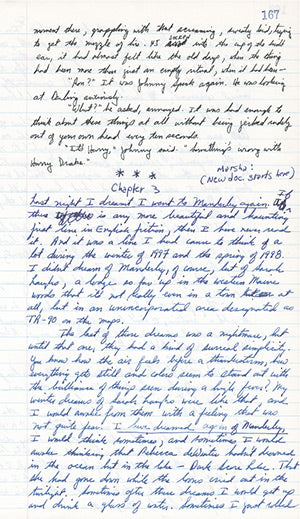 167
moment there, grappling with that screaming, twisty kid, trying
to get the muzzle of his .45 into the cup of the kid's
ear, it had almost felt like the old days, when the thing
had been more than just an empty ritual, when it had been—
"Ron?" It was Johnny speaking again. He was looking
at Darling anxiously.
"What?" he asked, annoyed. It was hard enough to
think about these things at all without being jerked rudely
out of your own head every ten seconds.
"It's Harry," Johnny said. "Something's wrong with
Harry Drake."
* * *
Marsha:
(New doc. starts here)
Chapter 3
Last night I dreamt I went to Manderley again. If
there is any more beautiful and haunting
first line in English fiction, then I have never read
it. And it was a line I had cause to think of a
lot during the winter of 1997 and the spring of 1998.
I didn't dream of Manderley, of course, but of Sarah
Laughs, a lodge so far up in the western Maine
woods that it's not really even in a town at
all, but in an unincorporated area designated as
TR-90 on the maps.
The last of those dreams was a nightmare, but
until that one, they had a kind of surreal simplicity.
You know how the air feels before a thunderstorm, how
everything gets still and colors seem to stand out with
the brilliance of things seen during a high fever? My
winter dreams of Sarah Laughs were like that, and
I would awake from them with a feeling that was
not quite fear. I have dreamed again of Manderley,
I would think sometimes, and sometimes I would
awake thinking that Rebecca deWinter hadn't drowned
in the ocean but in the lake – Dark Score Lake. That
she had gone down while the loons cried out in the
twilight. Sometimes after these dreams I would get up
and drink a glass of water. Sometimes I just rolled